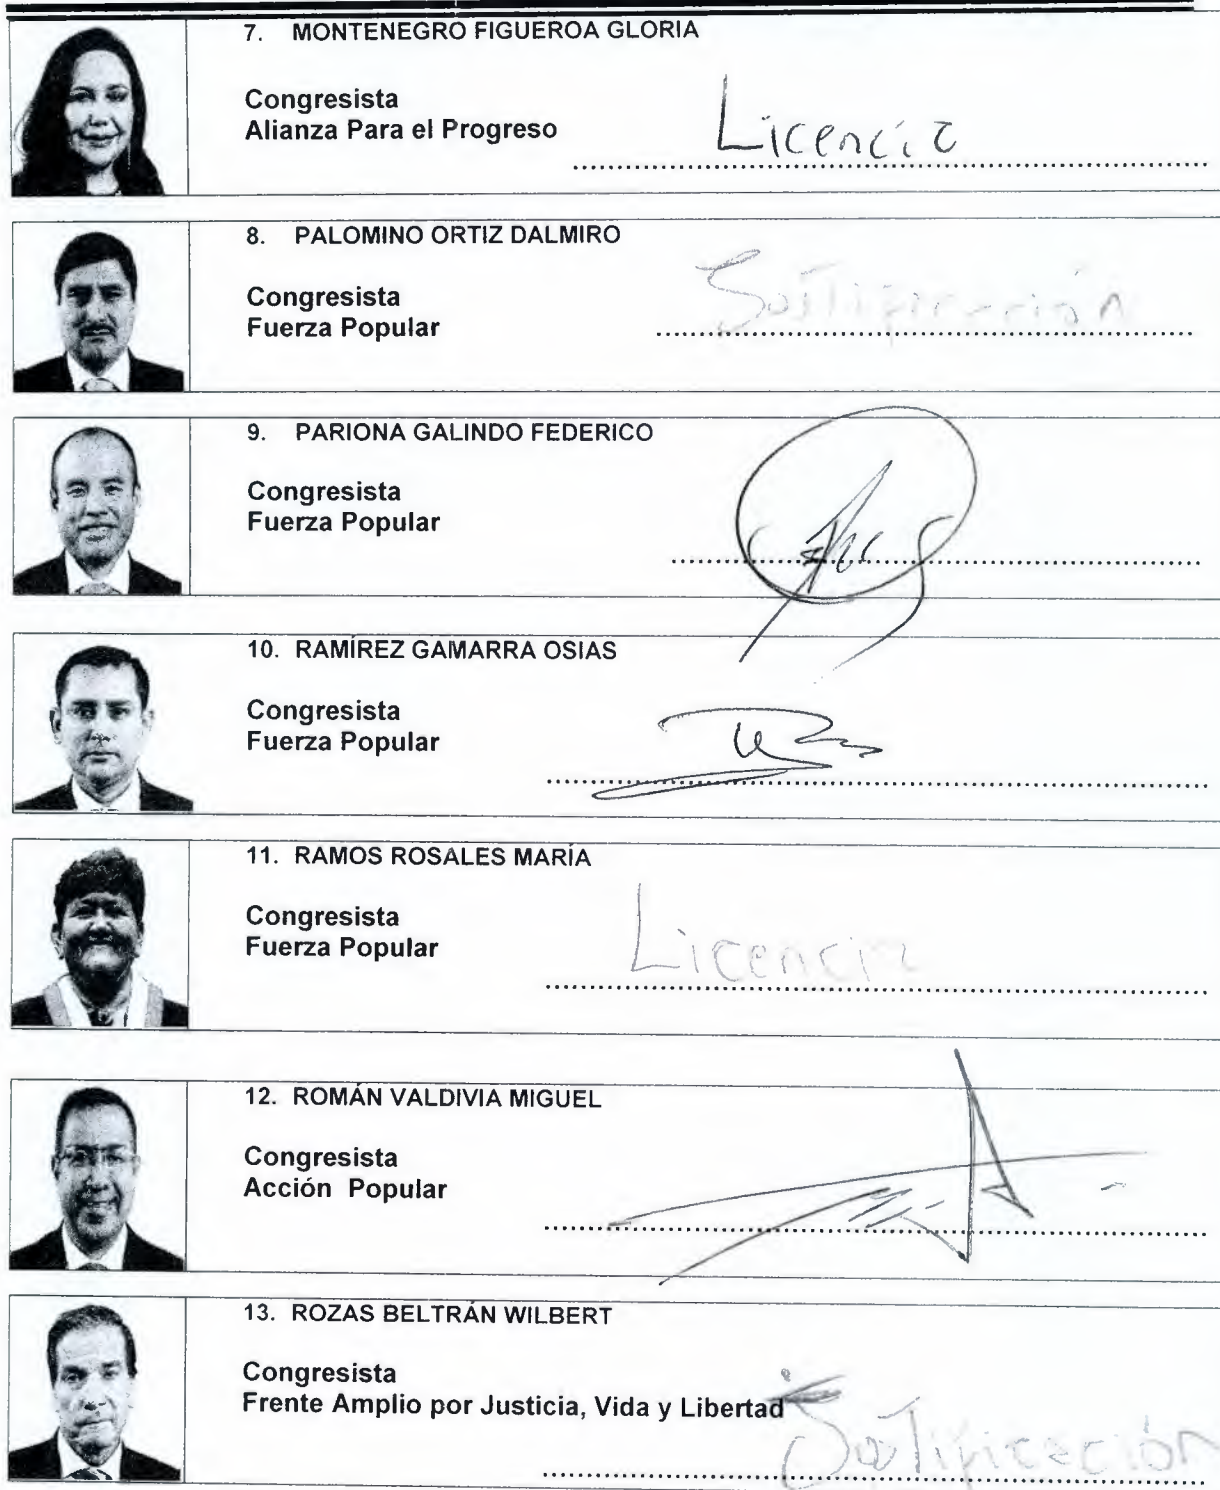 7. MONTENEGRO FIGUEROA GLORIA
Congresista
Alianza Para el Progreso
Licencia
8. PALOMINO ORTIZ DALMIRO
Congresista
Fuerza Popular
9. PARIONA GALINDO FEDERICO
Congresista
Fuerza Popular
10. RAMÍREZ GAMARRA OSIAS
Congresista
Fuerza Popular
11. RAMOS ROSALES MARÍA
Congresista
Fuerza Popular
Licencia
12. ROMÁN VALDIVIA MIGUEL
Congresista
Acción Popular
13. ROZAS BELTRÁN WILBERT
Congresista
Frente Amplio por Justicia, Vida y Libertad